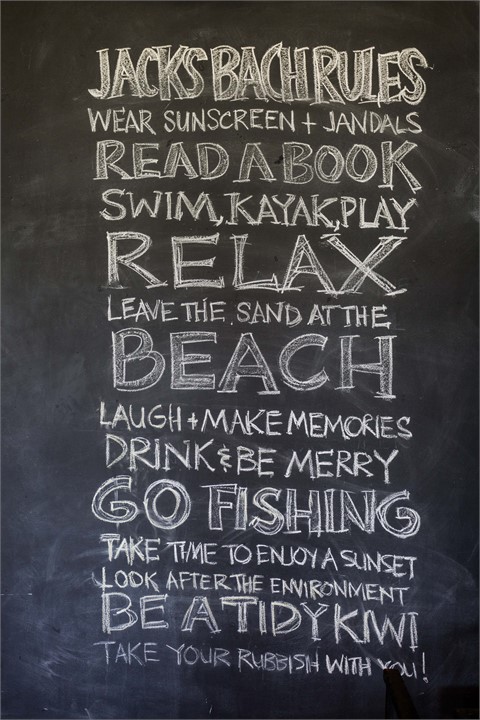 JACKS BACH RULES
WEAR SUNSCREEN + JANDALS
READ A BOOK
SWIM, KAYAK, PLAY
RELAX
LEAVE THE SAND AT THE
BEACH
LAUGH + MAKE MEMORIES
DRINK & BE MERRY
GO FISHING
TAKE TIME TO ENJOY A SUNSET
LOOK AFTER THE ENVIRONMENT
BE A TIDY KIWI
TAKE YOUR RUBBISH WITH YOU!